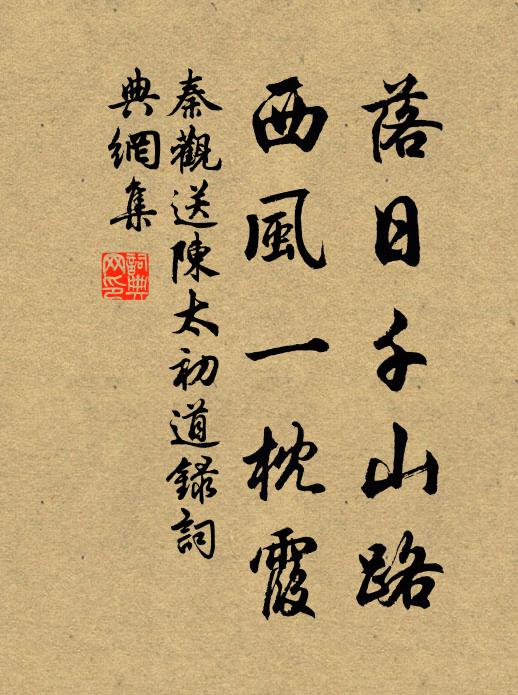 落日千山路
西風一枕霞
秦觀送陳太初道録詞
典網集
詞典网印